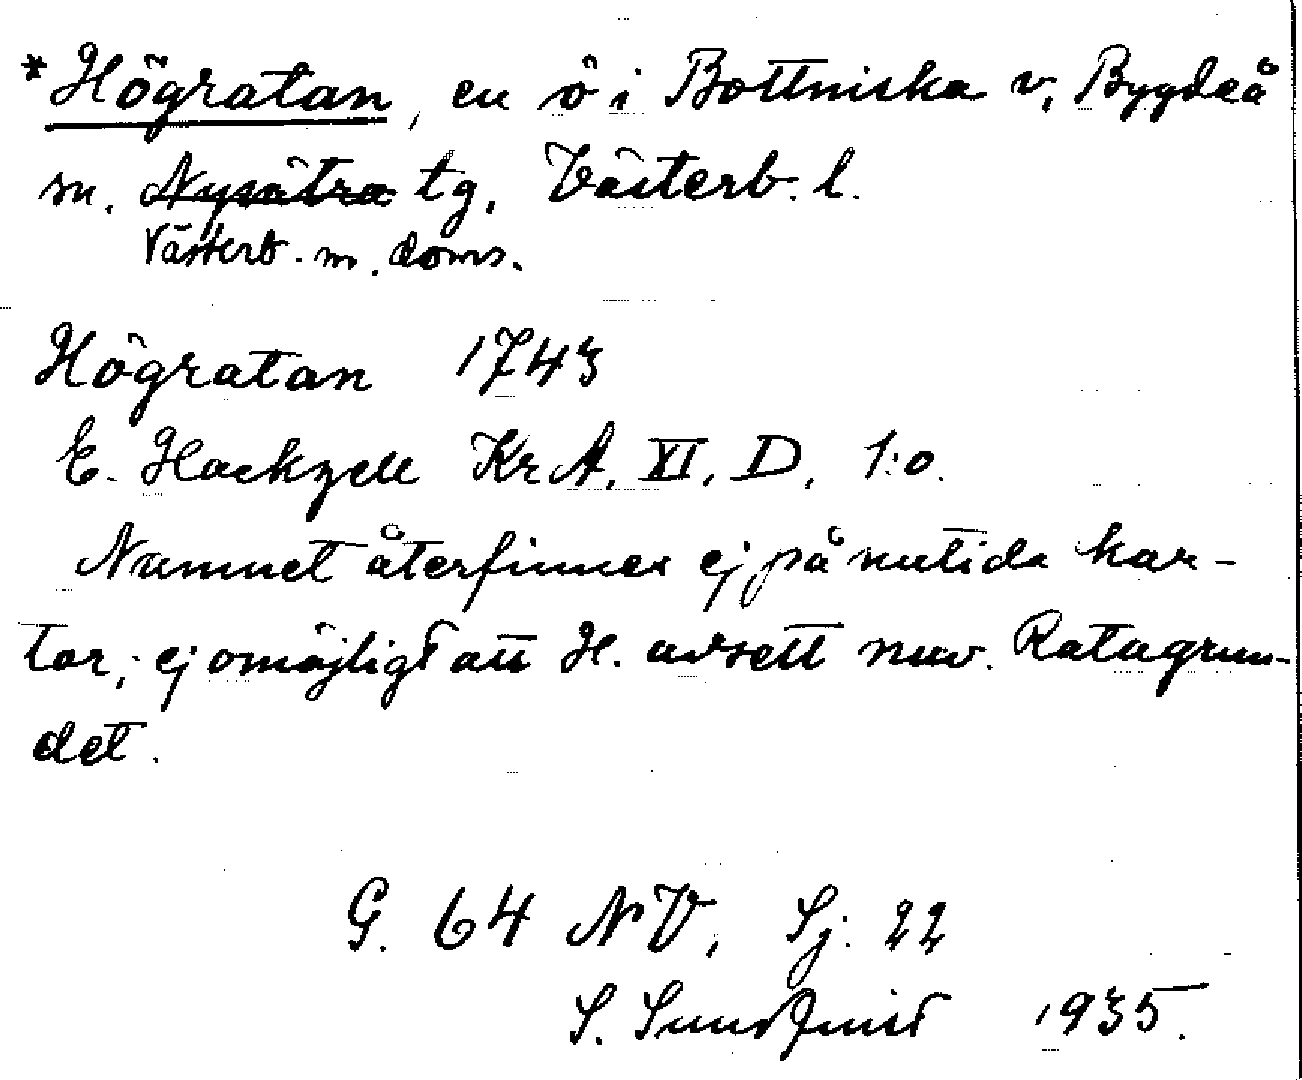 *Högratan, en ö i Bottniska v, Bygdeå
sn. Nysätra tg, Västerb. l.
Västerb. m. doms.
Högratan 1743
E. Hackzell KrA, XI, D, 1:o.
Namnet återfinnes ej på nutida kar-
tor, ej omöjligt att H. avsett nuv. Ratugrun-
det.
G. 64 NV, Sj. 22
S. Sundquist 1935.